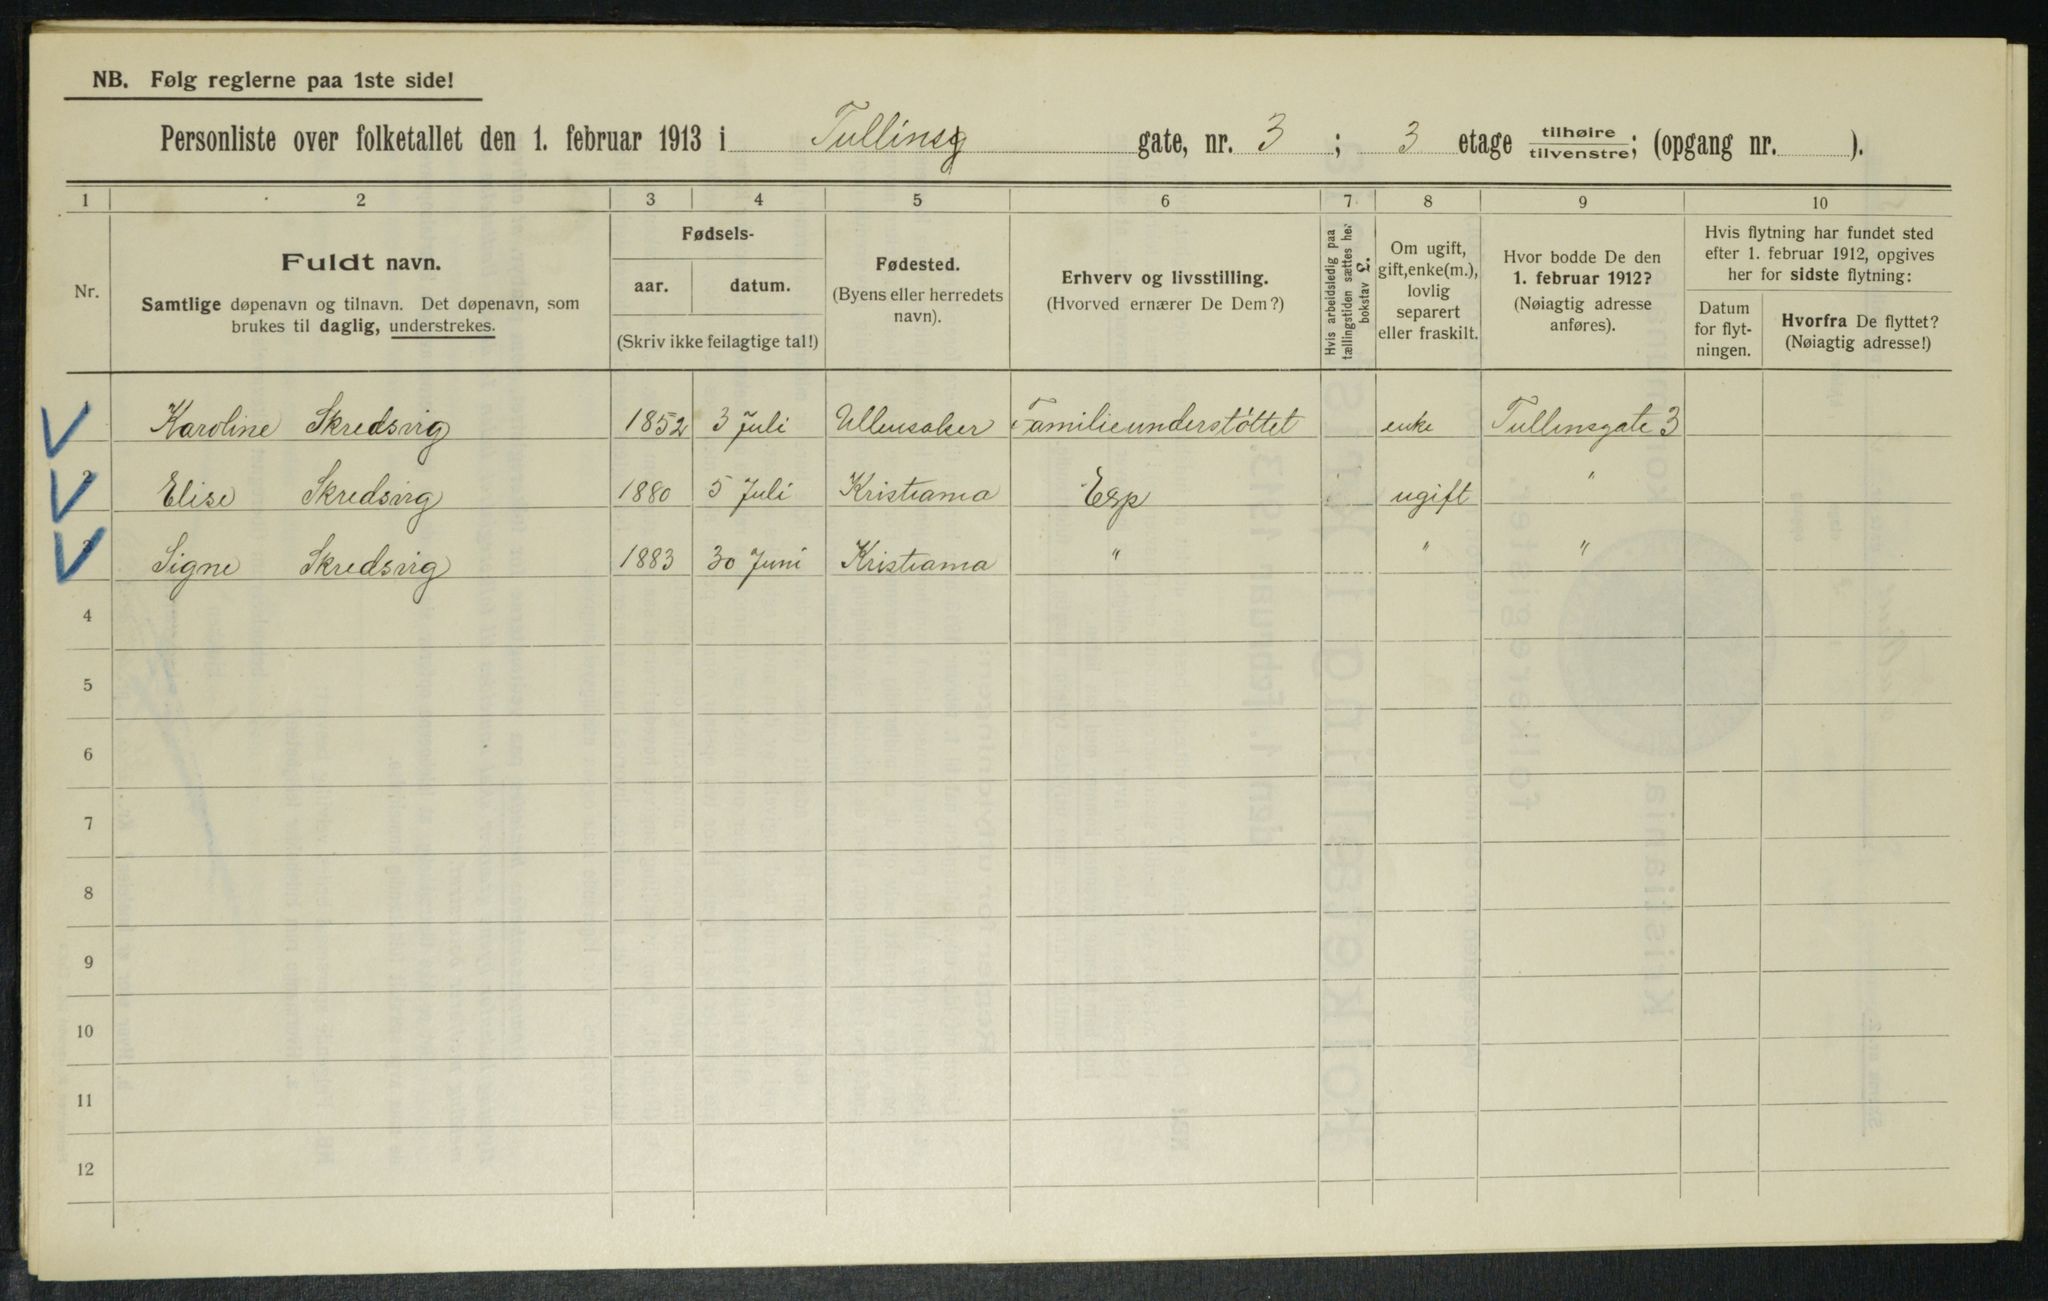 NB. Følg reglerne paa 1ste side!
Personliste over folketallet den 1. februar 1913 i Tullinsg gate, nr. 3 ; 3 etage tilhøire tilvenstre; (opgang nr. ).
1 2 3 4 5 6 7 8 9 10
Nr.
Fuldt navn.
Samtlige døpenavn og tilnavn. Det døpenavn, som
brukes til daglig, understrekes.
Fødsels-
aar. datum.
(Skriv ikke feilagtige tal!)
Fødested.
(Byens eller herredets
navn).
Erhverv og livsstilling.
(Hvorved ernærer De Dem?)
Hvis arbeidsledig paa
tællingstiden sættes her
bokstav L.
Om ugift,
gift, enke(m.),
lovlig
separert
eller fraskilt.
Hvor bodde De den
1. februar 1912?
(Nøiagtig adresse
anføres).
Hvis flytning har fundet sted
efter 1. februar 1912, opgives
her for sidste flytning:
Datum
for flyt-
ningen.
Hvorfra De flyttet?
(Nøiagtig adresse!)
1 Karoline Skredsvig 1852 3 Juli Ullensaker Familieunderstøttet enke Tullinsgate 3
2 Elise Skredsvig 1880 5 Juli Kristiania Exp ugift "
3 Signe Skredsvig 1883 30 Juni Kristiania " " "
4
5
6
7
8
9
10
11
12